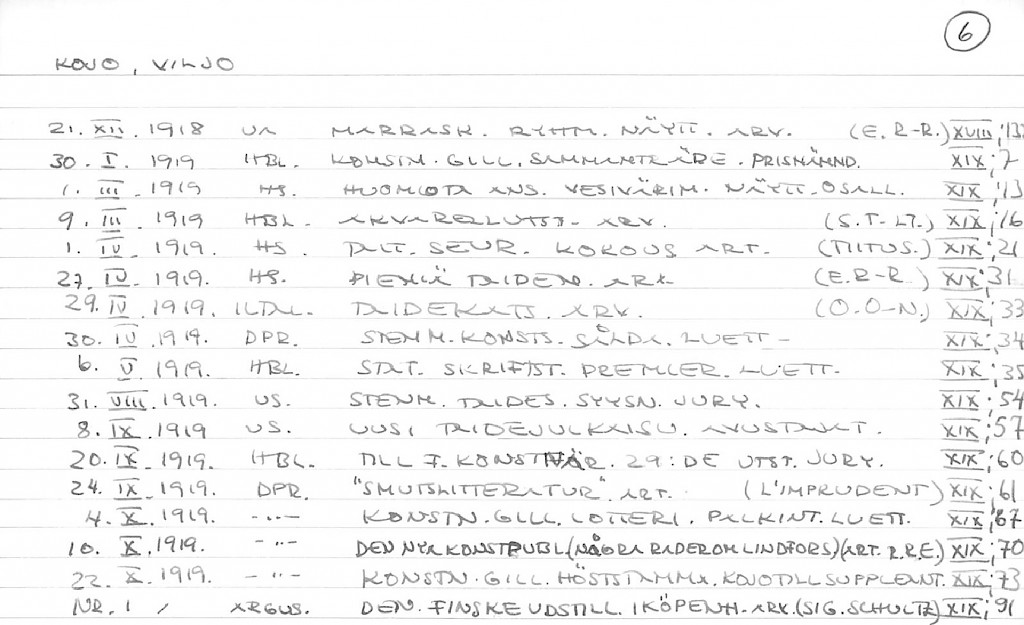 6
KOJO, VILJO
21. XII. 1918 UA MARRASK. RYHM. NÄYTT. ARV. (E. R-R.) XVIII;13
30. I. 1919 HBL. KONSTN. GILL. SAMMANTRÄDE. PRISNÄMND. XIX;7
1. III. 1919 HS. HUOMIOTA ANS. VESIVÄRIM. NÄYTT. OSALL. XIX;13
9. III 1919 HBL. AKVARELLUTST. ARV. (S.T-LT.) XIX;16
1. IV. 1919. HS. TAIT. SEUR. KOKOUS ART. (TIITUS.) XIX;21
27. IV. 1919. HS. PIENIÄ TAIDEN. ARV. (E.R-R.) XIX;31
29. IV 1919. ILTAL. TAIDEKATS. ARV. (O.O-N.) XIX;33
30. IV .1919. DPR. STENM. KONSTS. SÅLDA. LUETT- XIX;34
6. V. 1919. HBL. STAT. SKRIFTST. PREMIER. LUETT- XIX;35
31. VIII. 1919. US. STENM. TAIDES. SYYSN. JURY. XIX;54
8. IX .1919 US. UUSI TAIDEJULKAISU. AVUSTAJAT. XIX;57
20. IX. 1919. HBL. TILL F. KONSTNÄR. 29:DE UTST. JURY. XIX;60
24. IX. 1919. DPR. "SMUTSLITTERATUR". ART. (L'IMPRUDENT) XIX;61
4. X. 1919. -"- KONSTN. GILL. LOTTERI. PALKINT. LUETT. XIX;67
10. X. 1919. -"- DEN NYA KONSTPUBL (NÅGRA RADER OM LINDFORS) (ART. R.R.E.) XIX;70
22. X. 1919. -"- KONSTN. GILL. HÖSTSTÄMMA. KOJO TILL SUPPLEANT. XIX;73
NR. 1 / ARGUS. DEN FINSKE UDSTILL. I KÖPENH. ARV. (SIG. SCHULTZ) XIX;91